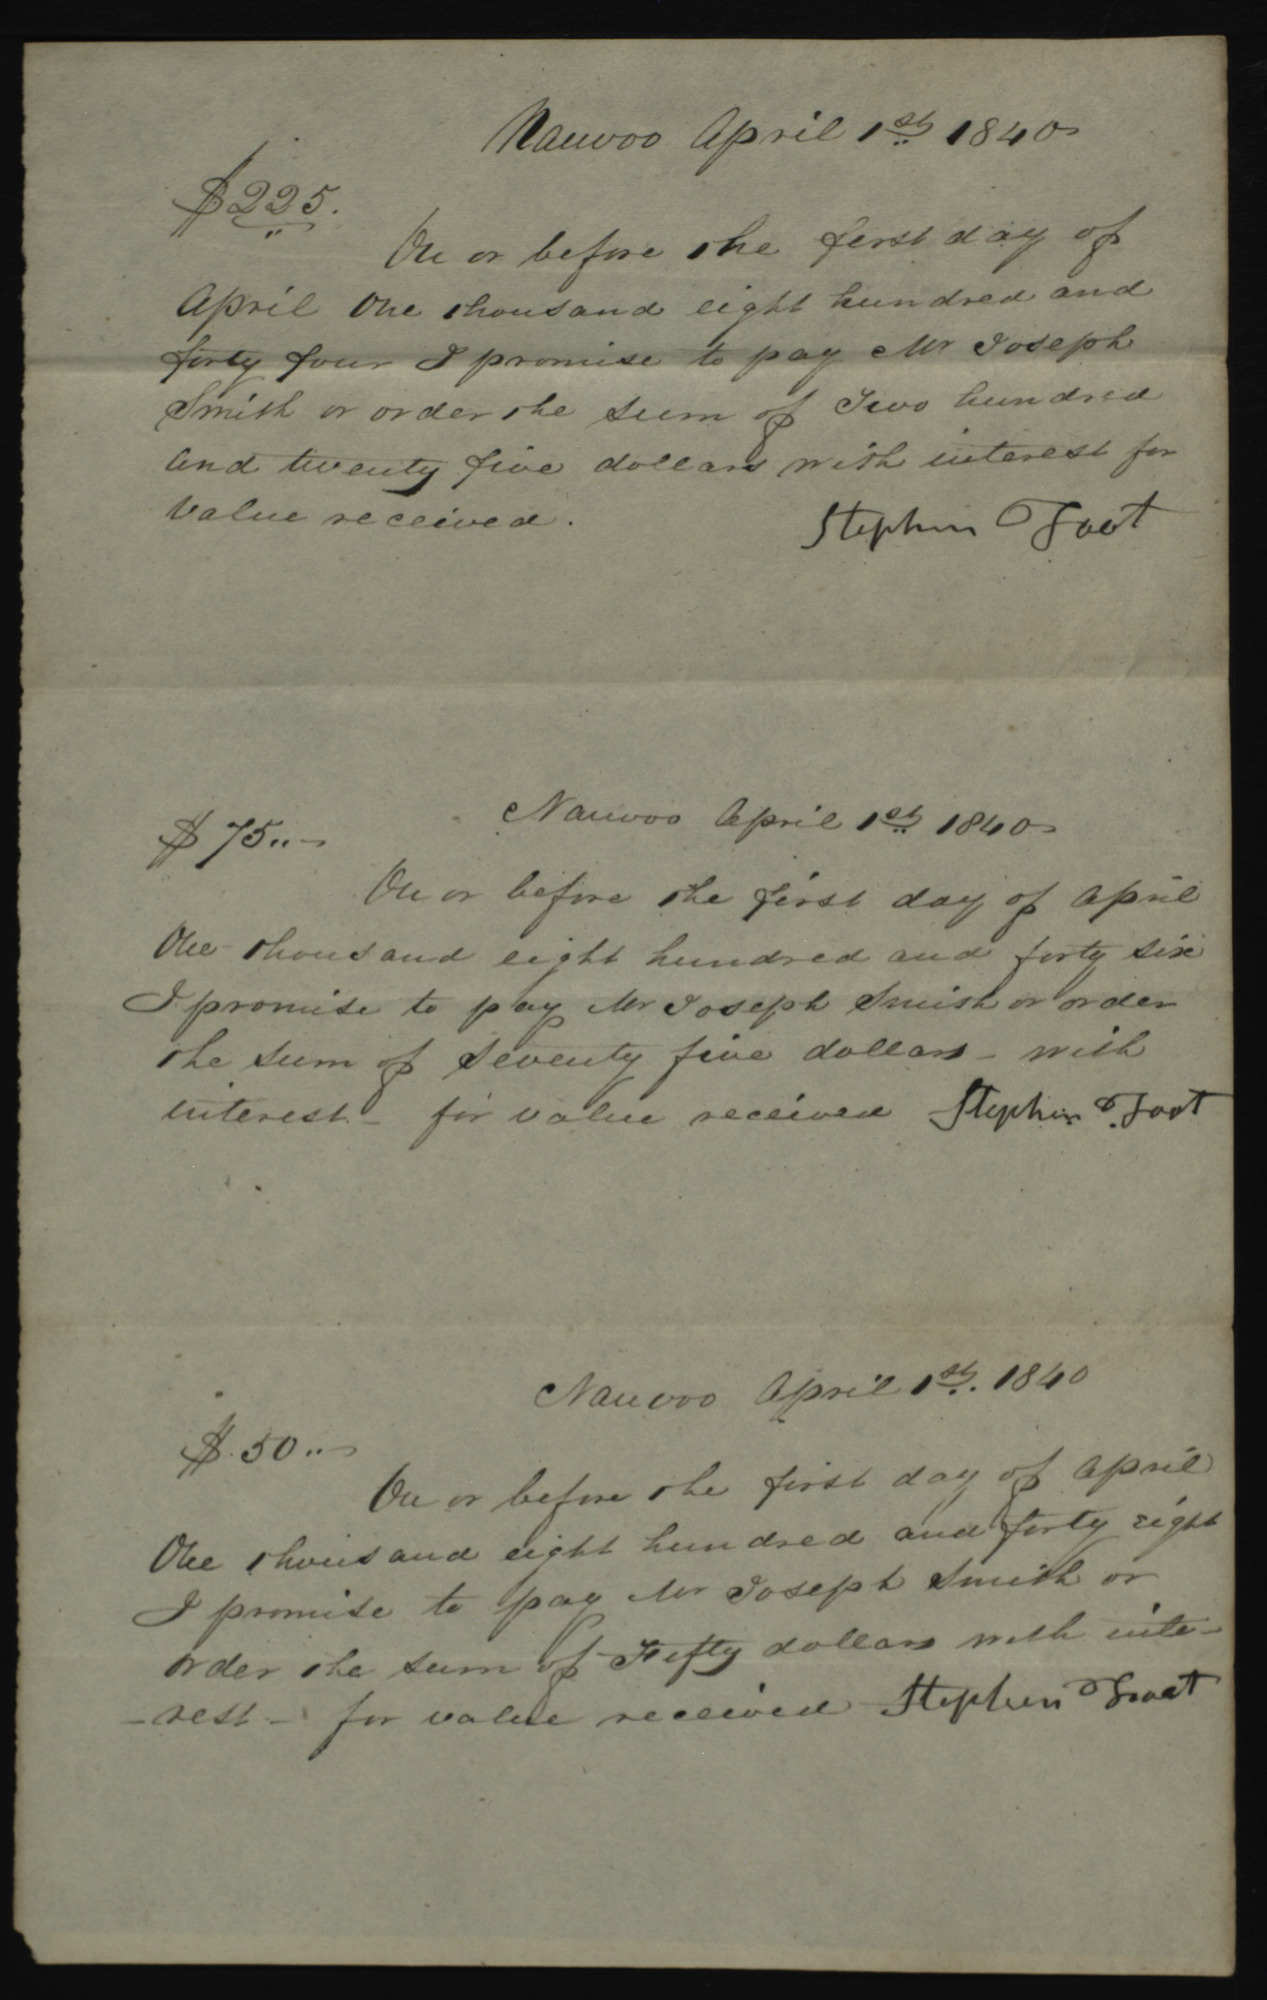 Nauvoo April 1st 1840
$225.
On or before the first day of
April One thousand eight hundred and
forty four I promise to pay Mr Joseph
Smith or order the sum of Two hundred
and twenty five dollars with interest for
value received.
Stephen Foot
Nauvoo April 1st 1840
$75..-
On or before the first day of April
One thousand eight hundred and forty six
I promise to pay Mr Joseph Smith or order
the sum of seventy five dollars - with
interest - for value received Stephen Foot
Nauvoo April 1st. 1840
$.50..-
On or before the first day of April
One thousand eight hundred and forty eight
I promise to pay Mr Joseph Smith or
order the sum of Fifty dollars with inte-
-rest - for value received Stephen Foot